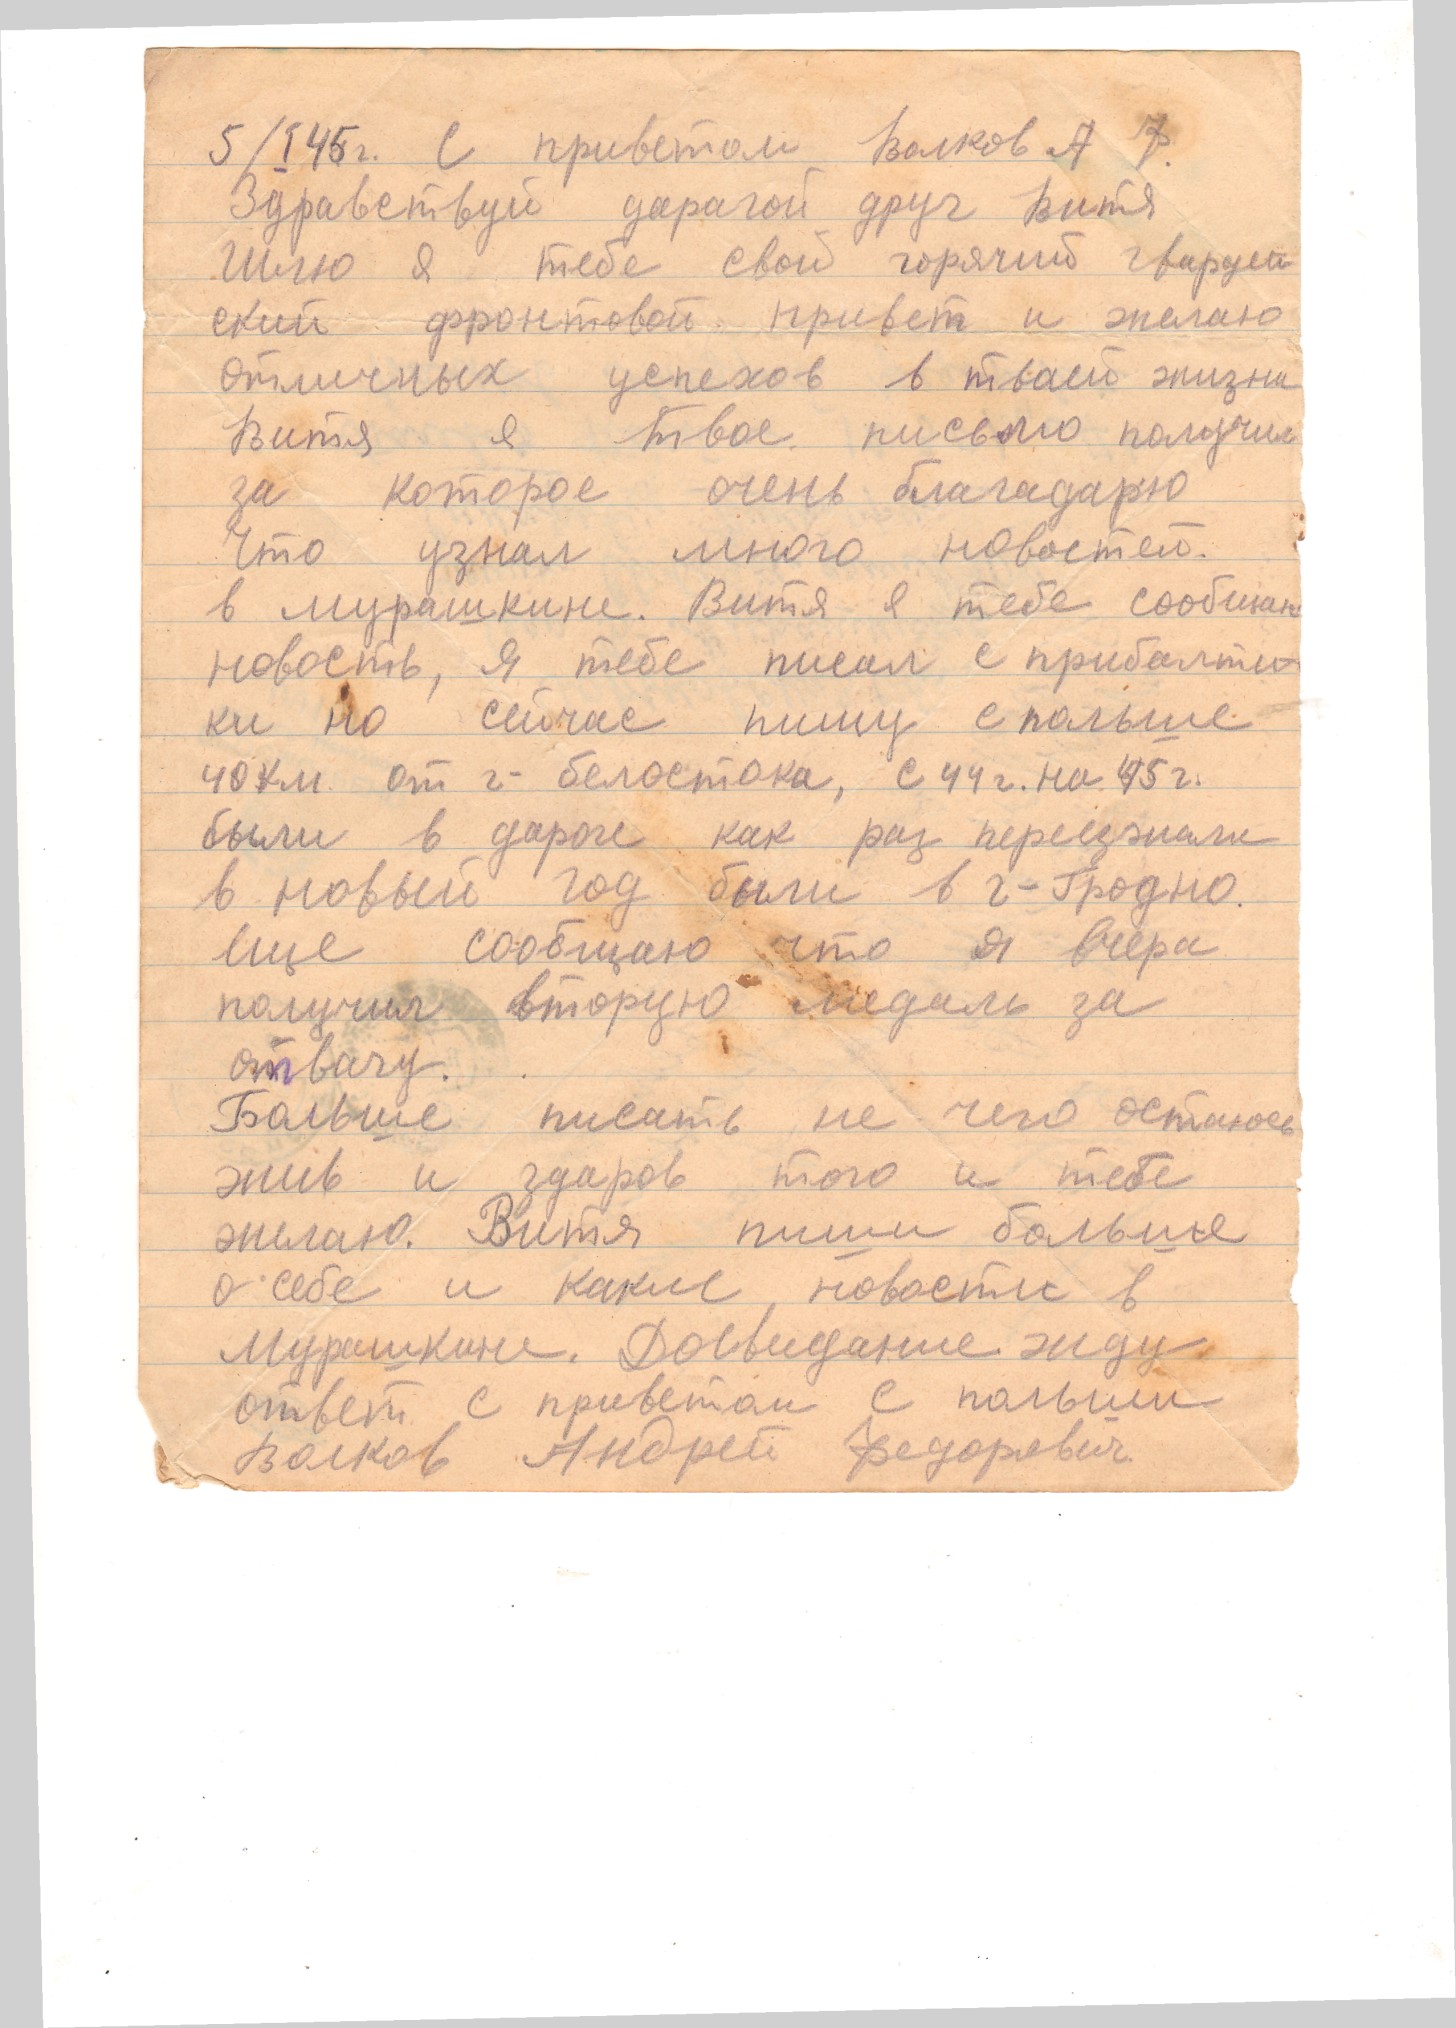 5/I 45г. С приветом Волков А Ф.
Здравствуй дарагой друг Витя
Шлю я тебе свой горячий гвардей
ский фронтовой привет и желаю
отличных успехов в тваей жизни
Витя я твое письмо получил
за которое очень благадарю
Что узнал много новостей.
в мурашкине. Витя я тебе сообщаю
новость, я тебе писал с прибалти-
ки но сейчас пишу с польше
40км от г- белостока, с 44г. на 45г.
были в дароге как раз переезжали
в новый год были в г-Гродно.
еще сообщаю что я вчера
получил вторую медаль за
отвагу.
Больше писать не чего остаюсь
жив и здаров того и тебе
желаю. Витя пиши больше
о себе и какие новости в
Мурашкине. Досвидание жду
ответ с приветом с польши
Волков Андрей Федоревич.